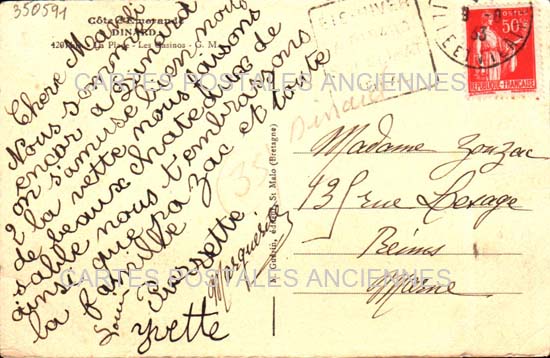 350591
Côte d'Emeraude
DINARD
La Plage - Les Casinos - G. M.
Chere
Nous sommes
encor a Dinard
on s'amuse bien nous
a la vette nous faisons
de beaux chateaux de
sable nous t'embrassons
ainsi que pa zac et toute
la famille
Poussette
Marguerite
Louis
Yvette
Dinard
(35)
Madame Jouzac
rue Lesage
Reims
Marne
POSTES
50c
REPUBLIQUE FRANÇAISE
Guérin, éditeur, St Malo (Bretagne)
CARTES POSTALES ANCIENNES
CARTES POSTALES ANCIENNES